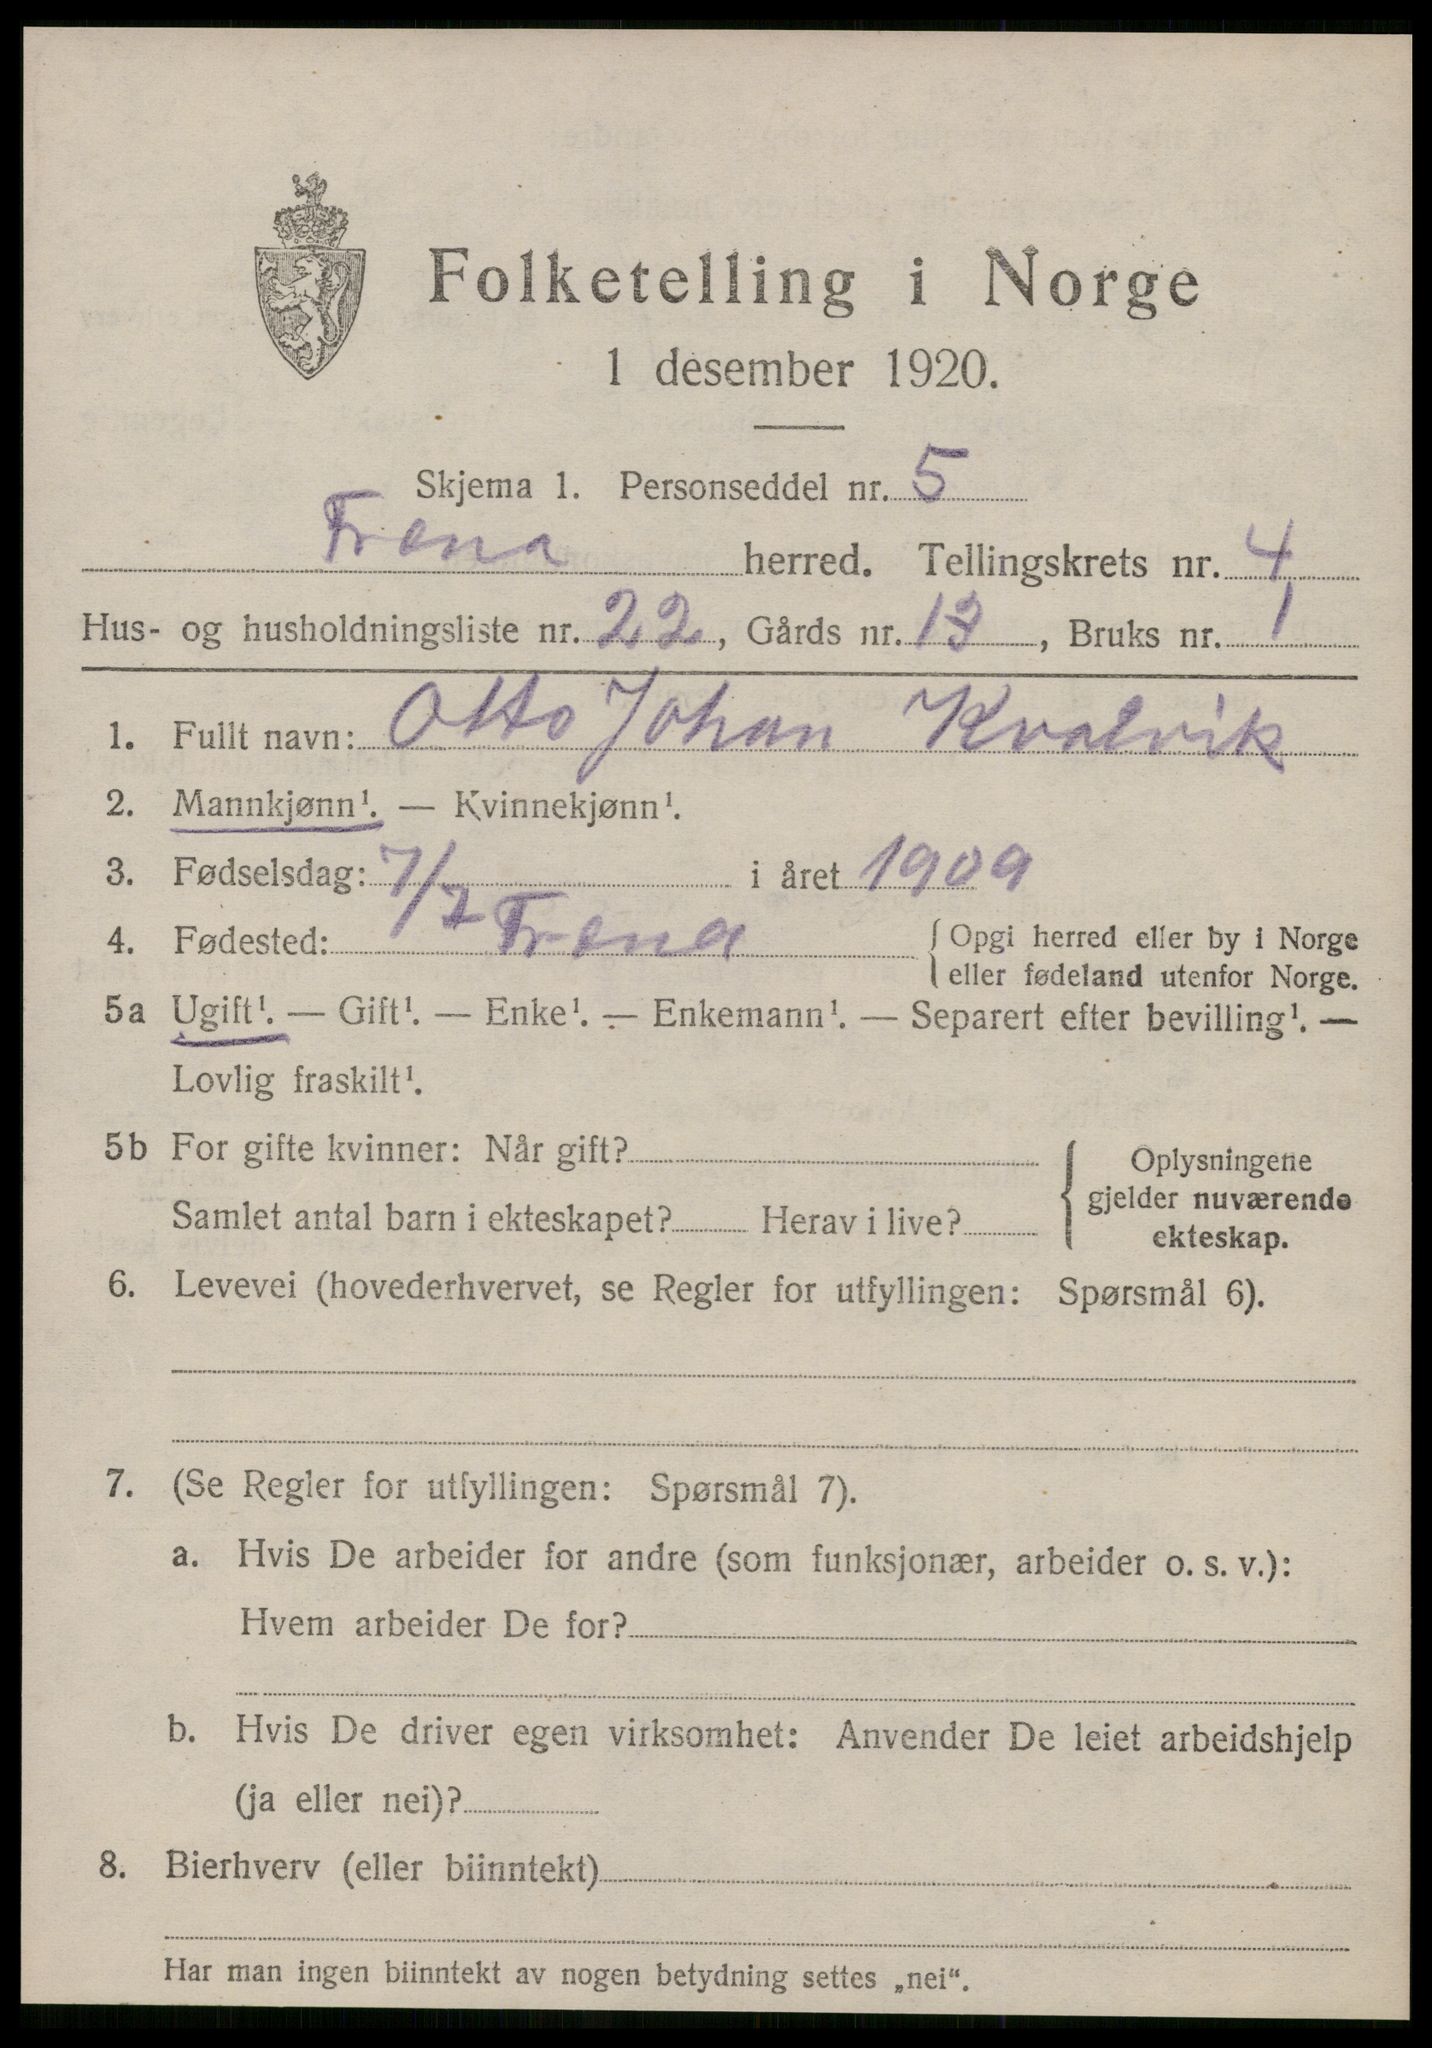 Folketelling i Norge
1 desember 1920.
Skjema 1. Personseddel nr. 5
Fræna herred. Tellingskrets nr. 4
Hus- og husholdningsliste nr. 22, Gårds nr. 13, Bruks nr. 1
1. Fullt navn: Otto Johan Kvalvik
2. Mannkjønn¹. — Kvinnekjønn¹.
3. Fødselsdag: 7/7 i året 1909
4. Fødested: Fræna { Opgi herred eller by i Norge
eller fødeland utenfor Norge.
5a Ugift¹. — Gift¹. — Enke¹. — Enkemann¹. — Separert efter bevilling¹. —
Lovlig fraskilt¹.
5b For gifte kvinner: Når gift? { Oplysningene
gjelder nuværende
Samlet antal barn i ekteskapet? Herav i live?
ekteskap.
6. Levevei (hovederhvervet, se Regler for utfyllingen: Spørsmål 6).
7. (Se Regler for utfyllingen: Spørsmål 7).
a. Hvis De arbeider for andre (som funksjonær, arbeider o. s. v.):
Hvem arbeider De for?
b. Hvis De driver egen virksomhet: Anvender De leiet arbeidshjelp
(ja eller nei)?
8. Bierhverv (eller biinntekt)
Har man ingen biinntekt av nogen betydning settes „nei“.